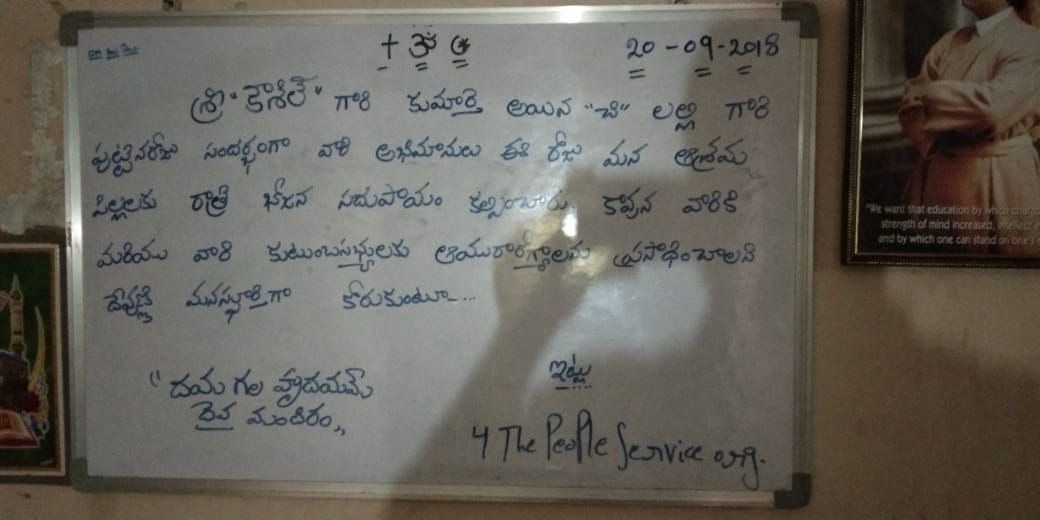 ఓం సాయి రాం
+ ॐ ☪
20-09-2018
శ్రీ "కౌశిల్" గారి కుమార్తె అయిన "చి" లల్లి గారి
పుట్టినరోజు సందర్భంగా వారి అభిమానులు ఈ రోజు మన ఆశ్రమ
పిల్లలకు రాత్రి భోజన సదుపాయం కల్పించారు. కావున వారికి
మరియు వారి కుటుంబసభ్యులకు ఆయురారోగ్యాలను ప్రసాదించాలని
దేవుణ్ణి మనస్ఫూర్తిగా కోరుకుంటూ....
" దయ గల హృదయమే
దైవ మందిరం,,
ఇట్లు
4 The People Service org.
"We want that education by which
strength of mind increased,
and by which one can stand on one's